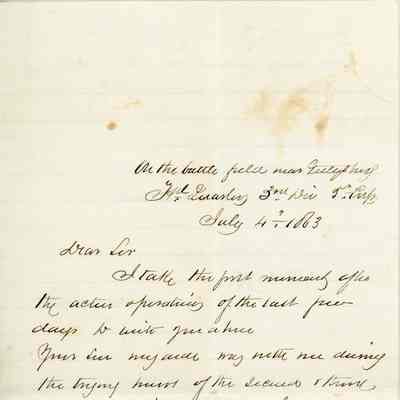 On the battle field near Gettysburg
Hd. Quarters 3rd Div 5th Corps
July 4th 1863
Dear Sir
I take the first moment after
the active operations of the last few
days to write you a line
Your Son was with me during
the trying hours of the second & third